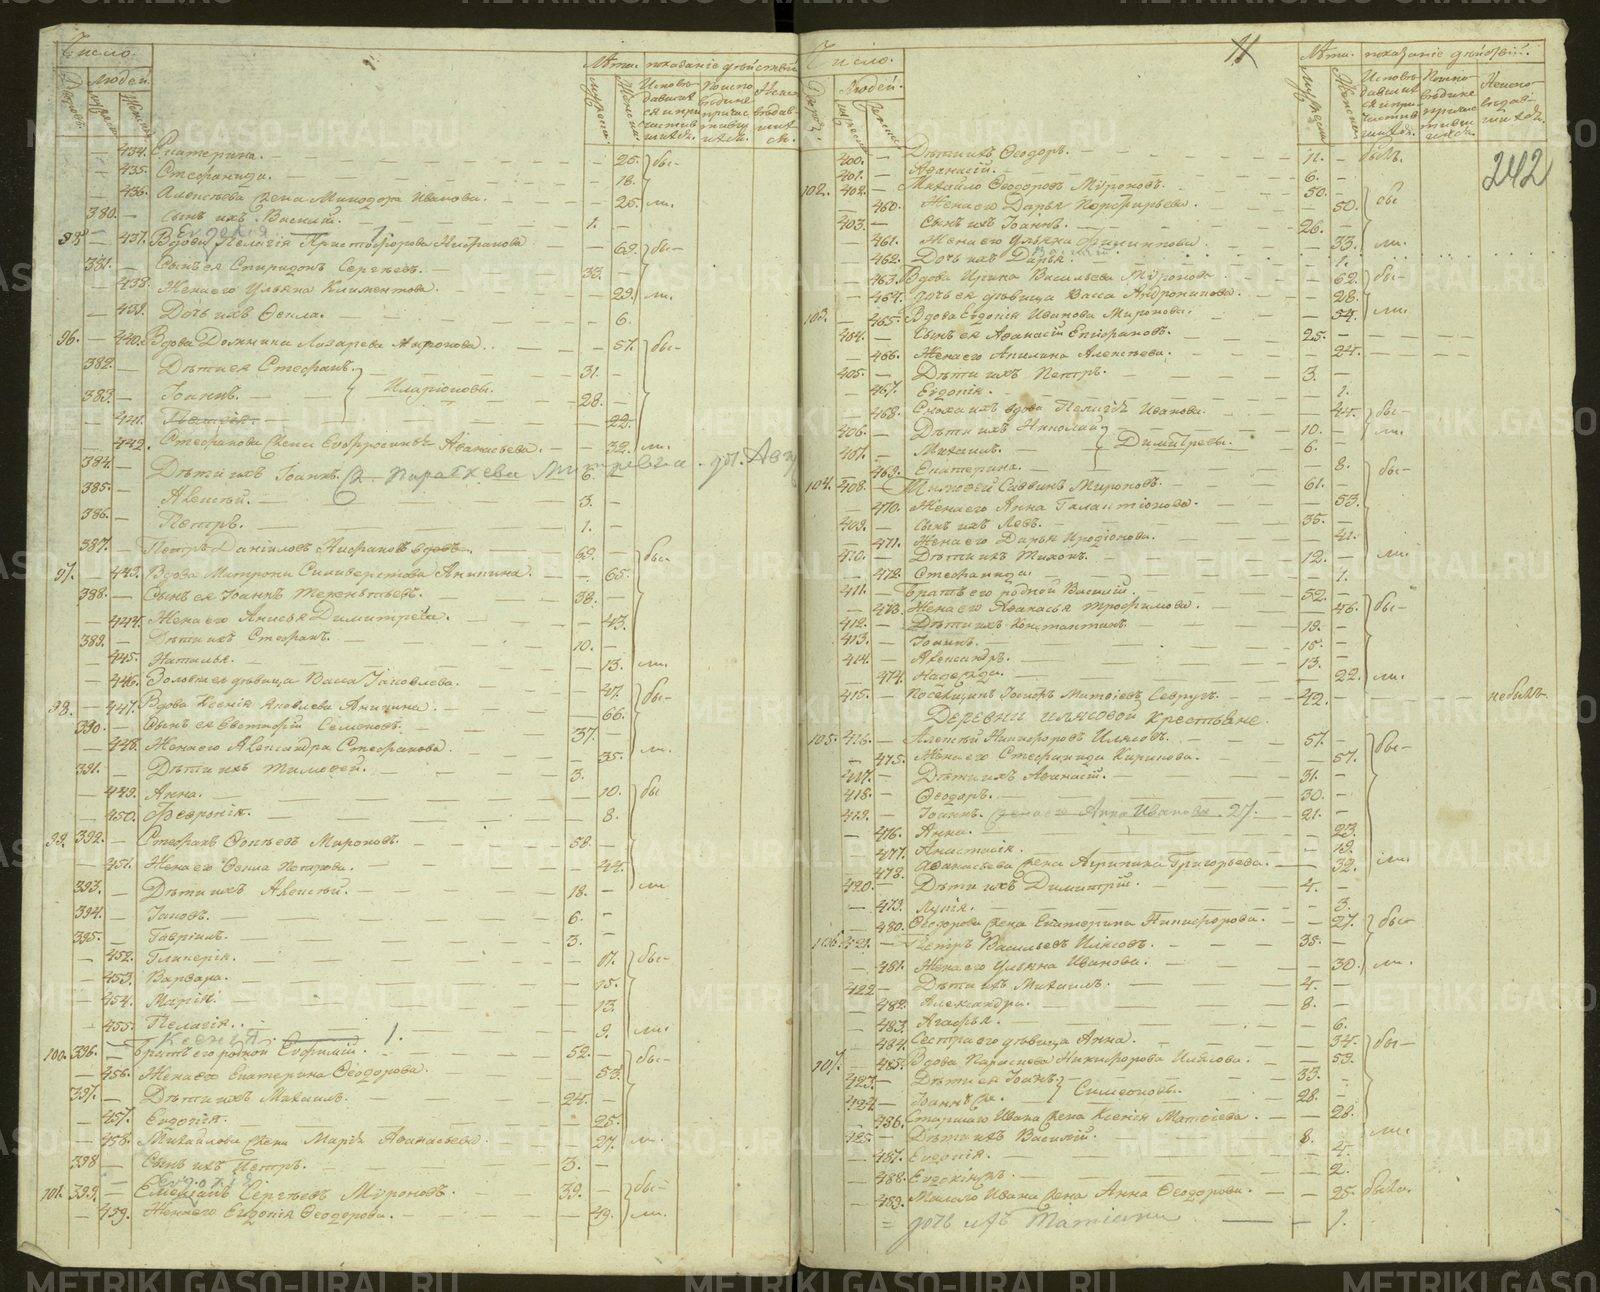 Число.
Людей.
Лѣта.
показаніе дѣйствій
434. Екатерина. 20. бы-
435. Стефанида. 18.
436. Алексѣева жена Минодора Иванова. 25. ли.
380. Сынъ ихъ Василій. 1.
437. Вдова Пелагія Христофорова 69. бы-
381. Сынъ ея Спиридонъ Сергѣевъ. 33.
438. Жена его Ульяна Климентова. 29. ли.
439. Дочь ихъ Ѳекла. 6.
96. 440. Вдова Домнина Лазарева 57. бы-
382. Дѣти ея Стефанъ. 31.
383. Іоаннъ. Иларіоновы. 28.
441. Пелагія. 22.
442. Стефанова жена Евфросинія Аѳанасьева. 32. ли.
384. Дѣти ихъ Іоаннъ. 6.
385. Алексѣй. 3.
386. Петръ. 1.
387. Петръ Даніиловъ 69. бы-
97. 443. Вдова Митрони Силиверстова Аникина. 65.
388. Сынъ ея Іоаннъ Терентьевъ. 38.
444. Жена его Анисья Димитріева. 43.
389. Дѣти ихъ Стефанъ. 10.
445. Наталья. 13. ли.
446. Золовка дѣвица Васса Іаковлева. 47. бы-
98. 447. Вдова Ксенія Яковлева Аникина. 66.
390. Сынъ ея Евстафій Семеновъ. 37.
448. Жена его Александра Стефанова. 35. ли.
391. Дѣти ихъ Тимоѳей. 3.
449. Анна. 10. бы
450. Февронія. 8.
99. 392. Стефанъ Мироновъ. 58.
451. Жена его Ѳекла Петрова. 44.
393. Дѣти ихъ Алексѣй. 18. ли
394. Іаковъ. 6.
395. Гавріилъ. 3.
452. Гликерія. 17. бы-
453. Варвара. 15.
454. Марія. 13.
455. Пелагія. 9. ли.
Ксенія. 1.
100. 396. Братъ его родной Евфимій. 52. бы-
456. Жена его Екатерина Ѳеодорова. 53.
397. Дѣти ихъ Михаилъ. 24.
457. Евдокія. 25.
458. Михайлова жена Марія Аѳанасьева. 27. ли.
398 Сынъ ихъ Петръ. 3.
101. 399. Сергѣевъ Мироновъ. 39. бы-
459. Жена его Евдокія Ѳеодорова. 49. ли.
Число.
Людей.
Лѣта.
показаніе дѣйствій.
242
400. Дѣти ихъ Ѳеодоръ. 11. былъ.
401. Аѳанасій. 6.
102. 402. Михайло Ѳеодоровъ Мироновъ. 50. бы
460. Жена его Дарья Порфирьева. 50.
403. Сынъ ихъ Іоаннъ. 26.
461. Жена его Ульяна Филиппова. 33. ли.
462. Дочь ихъ Дарья. 1.
463. Вдова Ирина Васильева Миронова. 62. бы-
464. Дочь ея дѣвица Васса Андроникова. 28.
103. 465. Вдова Евдокія Иванова Миронова. 54. ли.
404. Сынъ ея Аѳанасій Епифановъ. 25.
466. Жена его Акилина Алексѣева. 24.
405. Дѣти ихъ Петръ. 3.
467. Евдокія. 1.
468. Сноха ихъ вдова Пелагія Иванова. 44. бы-
406. Дѣти ихъ Николай 10. ли.
407. Михаилъ. Димитріевы. 6.
469. Екатерина. 8. бы-
104. 408. Тимоѳей Саввинъ Мироновъ. 61.
470. Жена его Анна Галактіонова. 53.
409. Сынъ ихъ Левъ. 35.
471. Жена его Дарья Иродіонова. 41.
410. Дѣти ихъ Тихонъ. 12. ли.
472. Стефанида. 1.
411. Братъ его родной Василій. 52.
473. Жена его Аѳанасья Трофимова. 46. бы-
412. Дѣти ихъ Константинъ. 19.
413. Іоаннъ. 15.
414. Александръ. 13.
474. Надежда. 22. ли.
415. Поселщикъ 42. небылъ.
Деревни Илясовой Крестьяне.
105. 416. Алексѣй Никифоровъ Илясовъ. 57. бы-
475. Жена его Стефанида Кирикова. 57.
417. Дѣти ихъ Аѳанасій. 31.
418. Ѳеодоръ. 30.
419. Іоаннъ. жена его Анна Иванова 27. 21.
476. Анна. 23.
477. Анастасія. 19.
478. Аѳанасьева жена Агрипина Григорьева. 32. ли.
420. Дѣти ихъ Димитрій. 4.
479. Лукія. 3.
480. Ѳеодорова жена Екатерина Никифорова. 27. бы-
106. 421. Петръ Васильевъ Илясовъ. 35.
481. Жена его Ульяна Иванова. 30. ли.
422 Дѣти ихъ Михаилъ. 4.
482. Александра. 8.
483. Агафья. 6.
484. Сестра его дѣвица Анна. 34. бы-
107. 485. Вдова Параскева Никифорова Илясова. 53.
423. Дѣти ея Іоаннъ 33.
424. Іоаннъ же. Симеоновы. 28.
486. Старшаго Ивана жена Ксенія Матѳіева. 28.
425. Дѣти ихъ Василій. 8. ли.
487. Евдокія. 4.
488. 2.
489. Малаго Ивана жена Анна Ѳеодорова. 25. была.
дочь ихъ Татіана 1.
METRIKI.GASO-URAL.RU